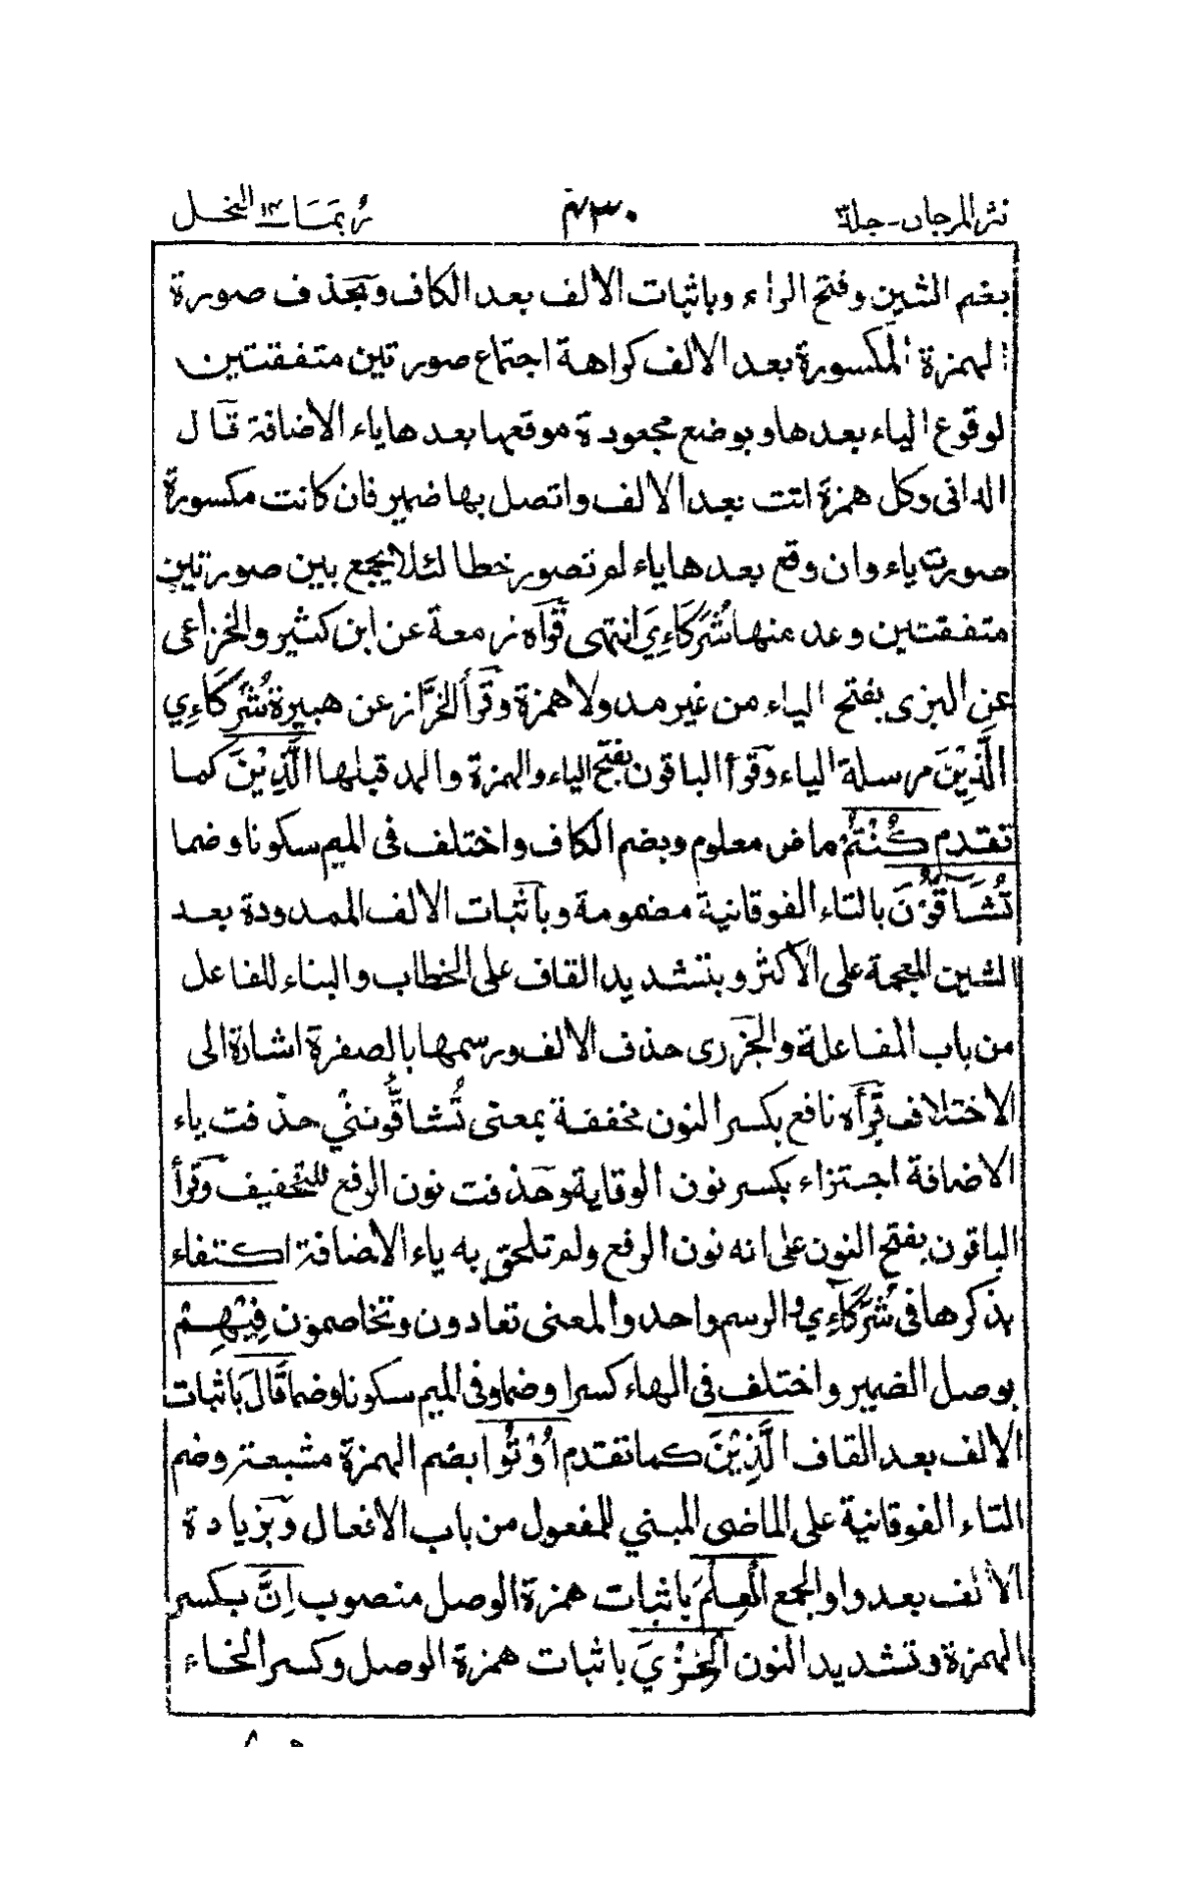 نثر المرجان - جلد ٣ ٤٣٠ ربما ١٤ النحل
بضم الشين وفتح الراء وباثبات الالف بعد الكاف وبحذف صورة
الهمزة المكسورة بعد الالف كراهة اجتماع صورتين متفقتين
لوقوع الياء بعدها وبوضع مجعودة موقعها بعدها ياء الاضافة قال
الدانى وكل همزة اتت بعد الالف واتصل بها ضمير فان كانت مكسورة
صورت ياء وان وقع بعدها ياء لم تصور خطا لئلا يجمع بين صورتين
متفقتين وعد منها شُرَكَاءِيَ انتهى قرأه زمعة عن ابن كثير والخزاعى
عن البزى بفتح الياء من غير مد ولا همزة وقرأ الخزّاز عن هبيرة شُرَكَاءِي
الَّذِيْنَ مرسلة الياء وقرأ الباقون بفتح الياء والهمزة والمد قبلها الَّذِيْنَ كما
تقدم كُنْتُمْ ماض معلوم وبضم الكاف واختلف فى الميم سكونا وضما
تُشَآقُّوْنَ بالتاء الفوقانية مضمومة وباثبات الالف الممدودة بعد
الشين المعجمة على الاكثر وبتشديد القاف على الخطاب والبناء للفاعل
من باب المفاعلة والجزرى حذف الالف ورسمها بالصفرة اشارة الى
الاختلاف قرأه نافع بكسر النون مخففة بمعنى تُشاقُّونني حذفت ياء
الاضافة اجتزاء بكسر نون الوقاية وحذفت نون الرفع للتخفيف وقرأ
الباقون بفتح النون على انه نون الرفع ولم تلحق به ياء الاضافة اكتفاء
بذكرها فى شُرَكَآءِي والرسم واحد والمعنى تعادون وتخاصمون فِيْهِمْ
بوصل الضمير واختلف فى الهاء كسرا وضما وفى الميم سكونا وضما قَالَ باثبات
الالف بعد القاف الَّذِيْنَ كما تقدم اُوْتُوا بضم الهمزة مشبعة وضم
التاء الفوقانية على الماضى المبني للمفعول من باب الافعال وبزيادة
الالف بعد واو الجمع الْعِلْمَ باثبات همزة الوصل منصوب اِنَّ بكسر
الهمزة وتشديد النون الْخِزْيَ باثبات همزة الوصل وكسر الخاء